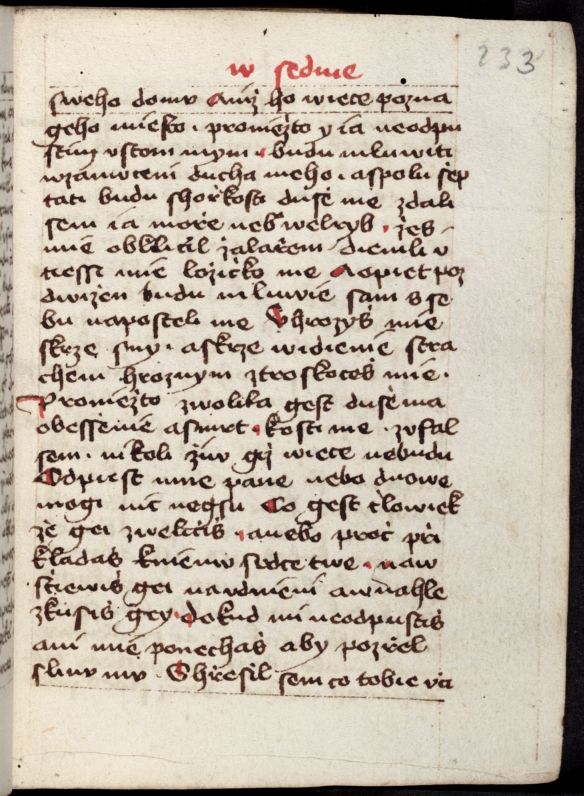 w sedmе
233
sweho domu Aniż ho wiece pozna
geho miesto . promiežto y ia neodpu
stim vstom mym . budu mluwiti
wzamuceni ducha meho . aspolu ſep
tati budu shořkosti duše me zdali
sem ia moře neb welryb . żes
mie obklicil żalařem diemli v
tiessi mie lożicko me Aopiet poz
dwiżen budu mluwie sam s se
bu naposteli me Uhrozyš mie
skrze sny . askrze widienie stra
chem hroznym ztroskoceš mie .
Promiežto zwolila gest duše ma
obessenie asmrt . kosti me . zufal
sem . nikoli żiw giż wiece nebudu
Odpust mne pane nebo dnowe
mogi nic negsu Co gest clowiek
że gei zweliciš . anebo proč při
kladaš kniemu srdce twe . naw
sciewiš gei navdnieni awnahle
zkusiš gey . dokud mi neodpustiš
ani mie ponechaš aby pozřel
slinu mu . Shřešil sem co tobie vci